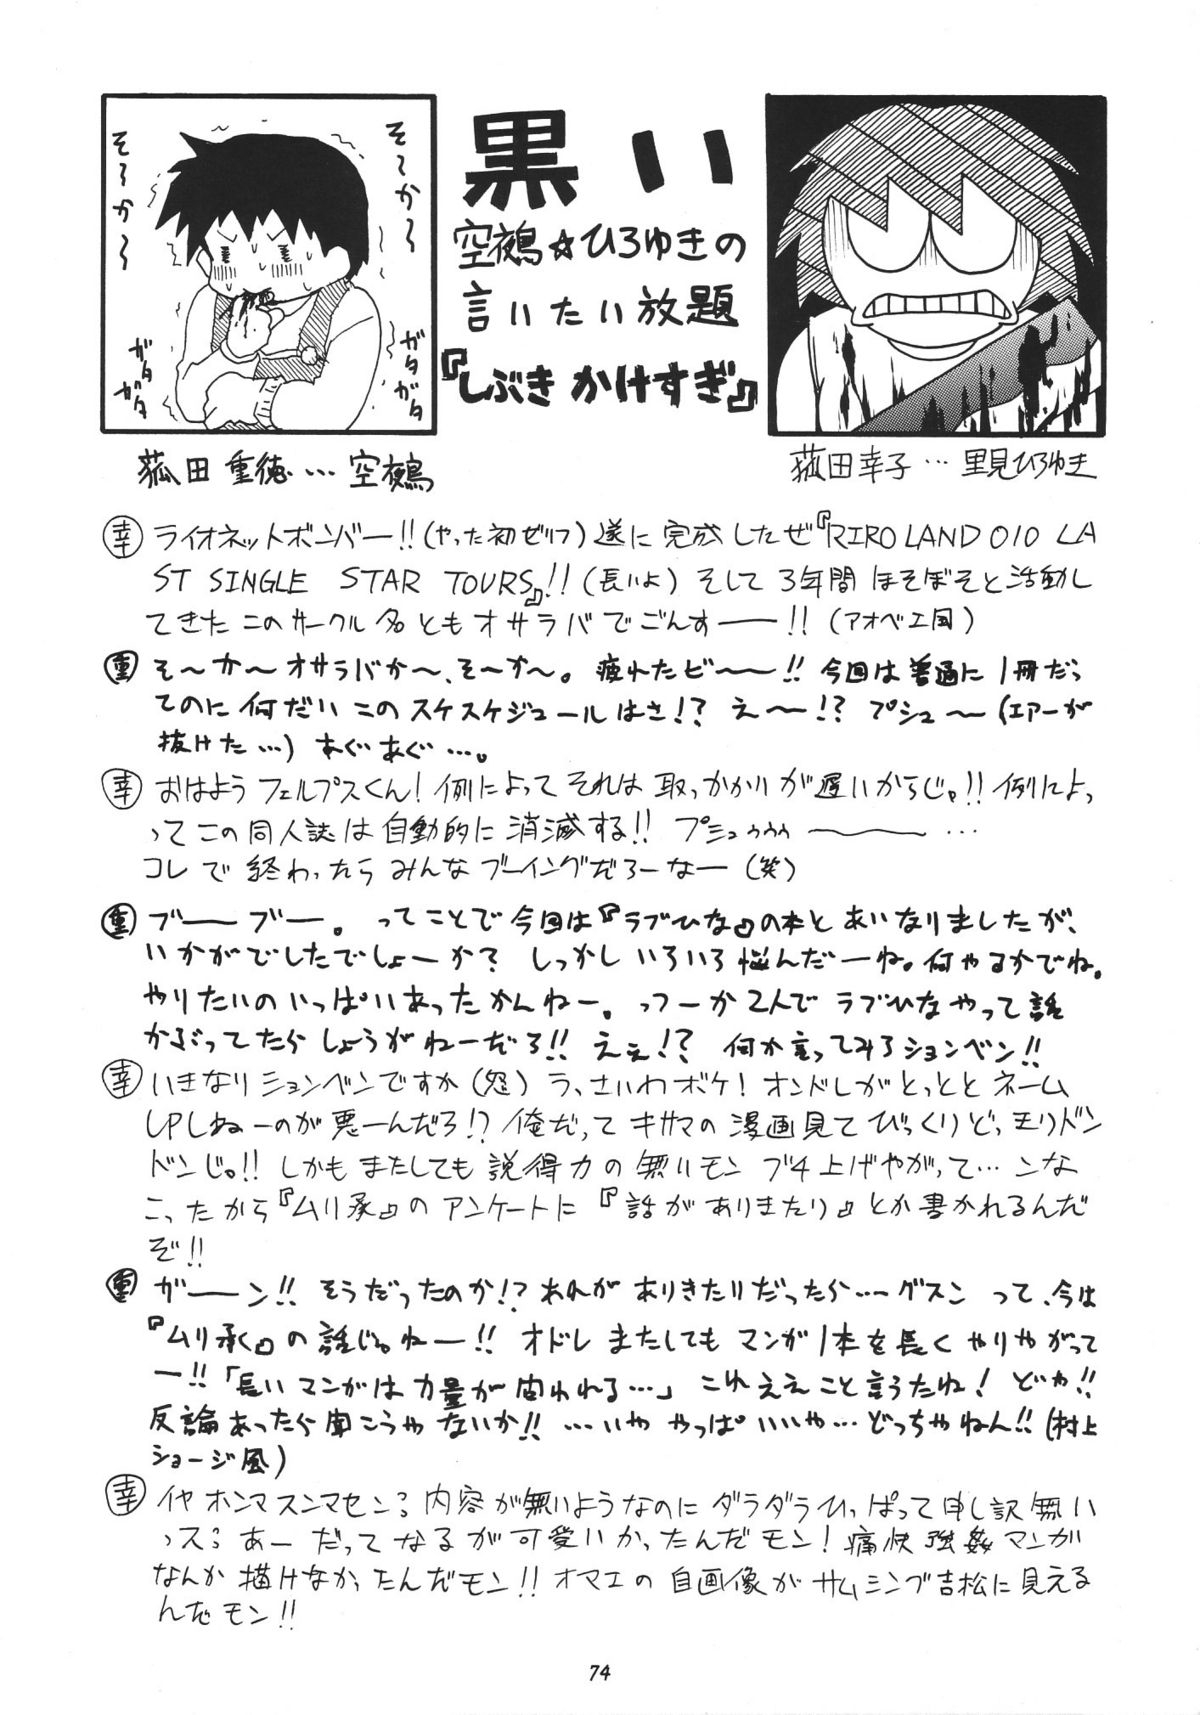 黒い
空鵺☆ひろゆきの
言いたい放題
『しぶきかけすぎ』
そ〜か〜
そ〜か〜
ガタガタ
ガタガタ
狐田重徳…空鵺
狐田幸子…里見ひろゆき
幸 ライオネットボンバー!!(やった初ゼリフ)遂に完成したぜ『RIROLAND010 LA
ST SINGLE STAR TOURS』!!(長いよ)そして3年間ほそぼそと活動し
てきたこのサークル名ともオサラバでごんすーー!!(アオベエ風)
重 そ〜か〜オサラバか〜、そ〜か〜。疲れたビ〜〜!!今回は普通に1冊だっ
てのに何だいこのスケスケジュールはさ!?え〜〜!?プシュ〜〜(エアーが
抜けた…)あぐあぐ…。
幸 おはようフェルプスくん!例によってそれは取っかかりが遅いからじゃ!!例によっ
ってこの同人誌は自動的に消滅する!!プシュゥゥゥ〜〜〜…
コレで終わったらみんなブーイングだろーなー(笑)
重 ブーーブー。ってことで今回は『ラブひな』の本とあいなりましたが、
いかがでしたでしょーか?しっかしいろいろ悩んだーね。何やるかでね。
やりたいのいっぱいあったかんねー。っつーか2人でラブひなやって話
かぶってたらしょうがねーだろ!!ええ!?何か言ってみろションベン!!
幸 いきなりションベンですか(怨)うっさいわボケ!オンドレがとっととネーム
UPしねーのが悪ーんだろ!?俺だってキサマの漫画見てびっくりどっきりドン
ドンじゃ!!しかもまたしても説得力の無いモンブチ上げやがって…ンな
こったから『ムリ承』のアンケートに『話がありきたり』とか書かれるんだ
ぞ!!
重 ガーーン!!そうだったのか!?あれがありきたりだったら…グスンって、今は
『ムリ承』の話じゃねー!!オドレまたしてもマンガ1本を長くやりやがって
ー!!「長いマンガは力量が問われる…」これええこと言うたね!どや!!
反論あったら聞こうやないか!!…いややっぱいいや…どっちやねん!!(村上
ショージ風)
幸 イヤホンマスンマセン?内容が無いようなのにダラダラひっぱって申し訳無い
っス?あーだってなるが可愛いかったんだモン!痛快強姦マンガ
なんか描けなかったんだモン!!オマエの自画像がサムシング吉松に見える
んだモン!!
74